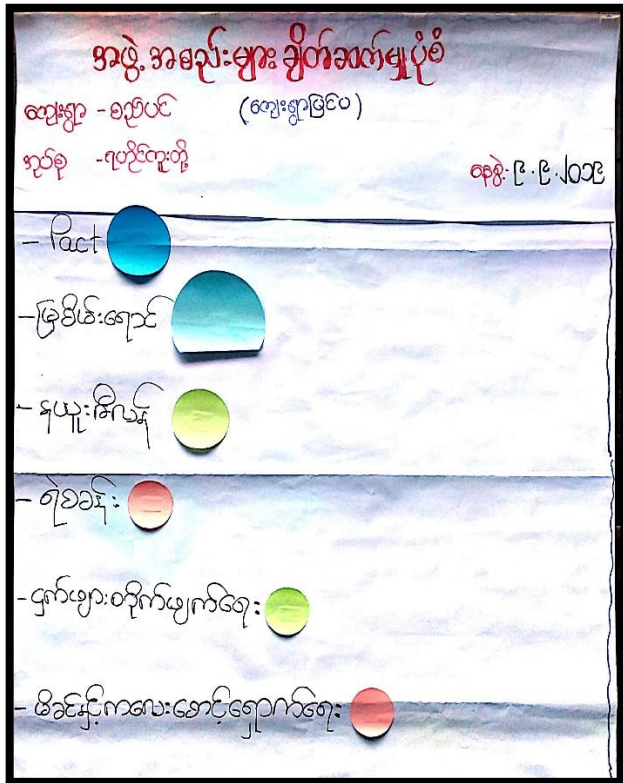 အဖွဲ့အစည်းများချိတ်ဆက်မှုပုံစံ
ကျေးရွာ - စည်ပင် (ကျေးရွာပြင်ပ)
အုပ်စု - ရတိုင်ကူးတို့ နေ့စွဲ - ၉.၉.၂၀၁၉
- Pact
- မြစိမ်းရောင်
- နယူးဇီလန်
- ရဲစခန်း
- ငှက်ဖျားစတိုက်ဖျက်ရေး
- မိခင်နှင့်ကလေးစောင့်ရှောက်ရေး